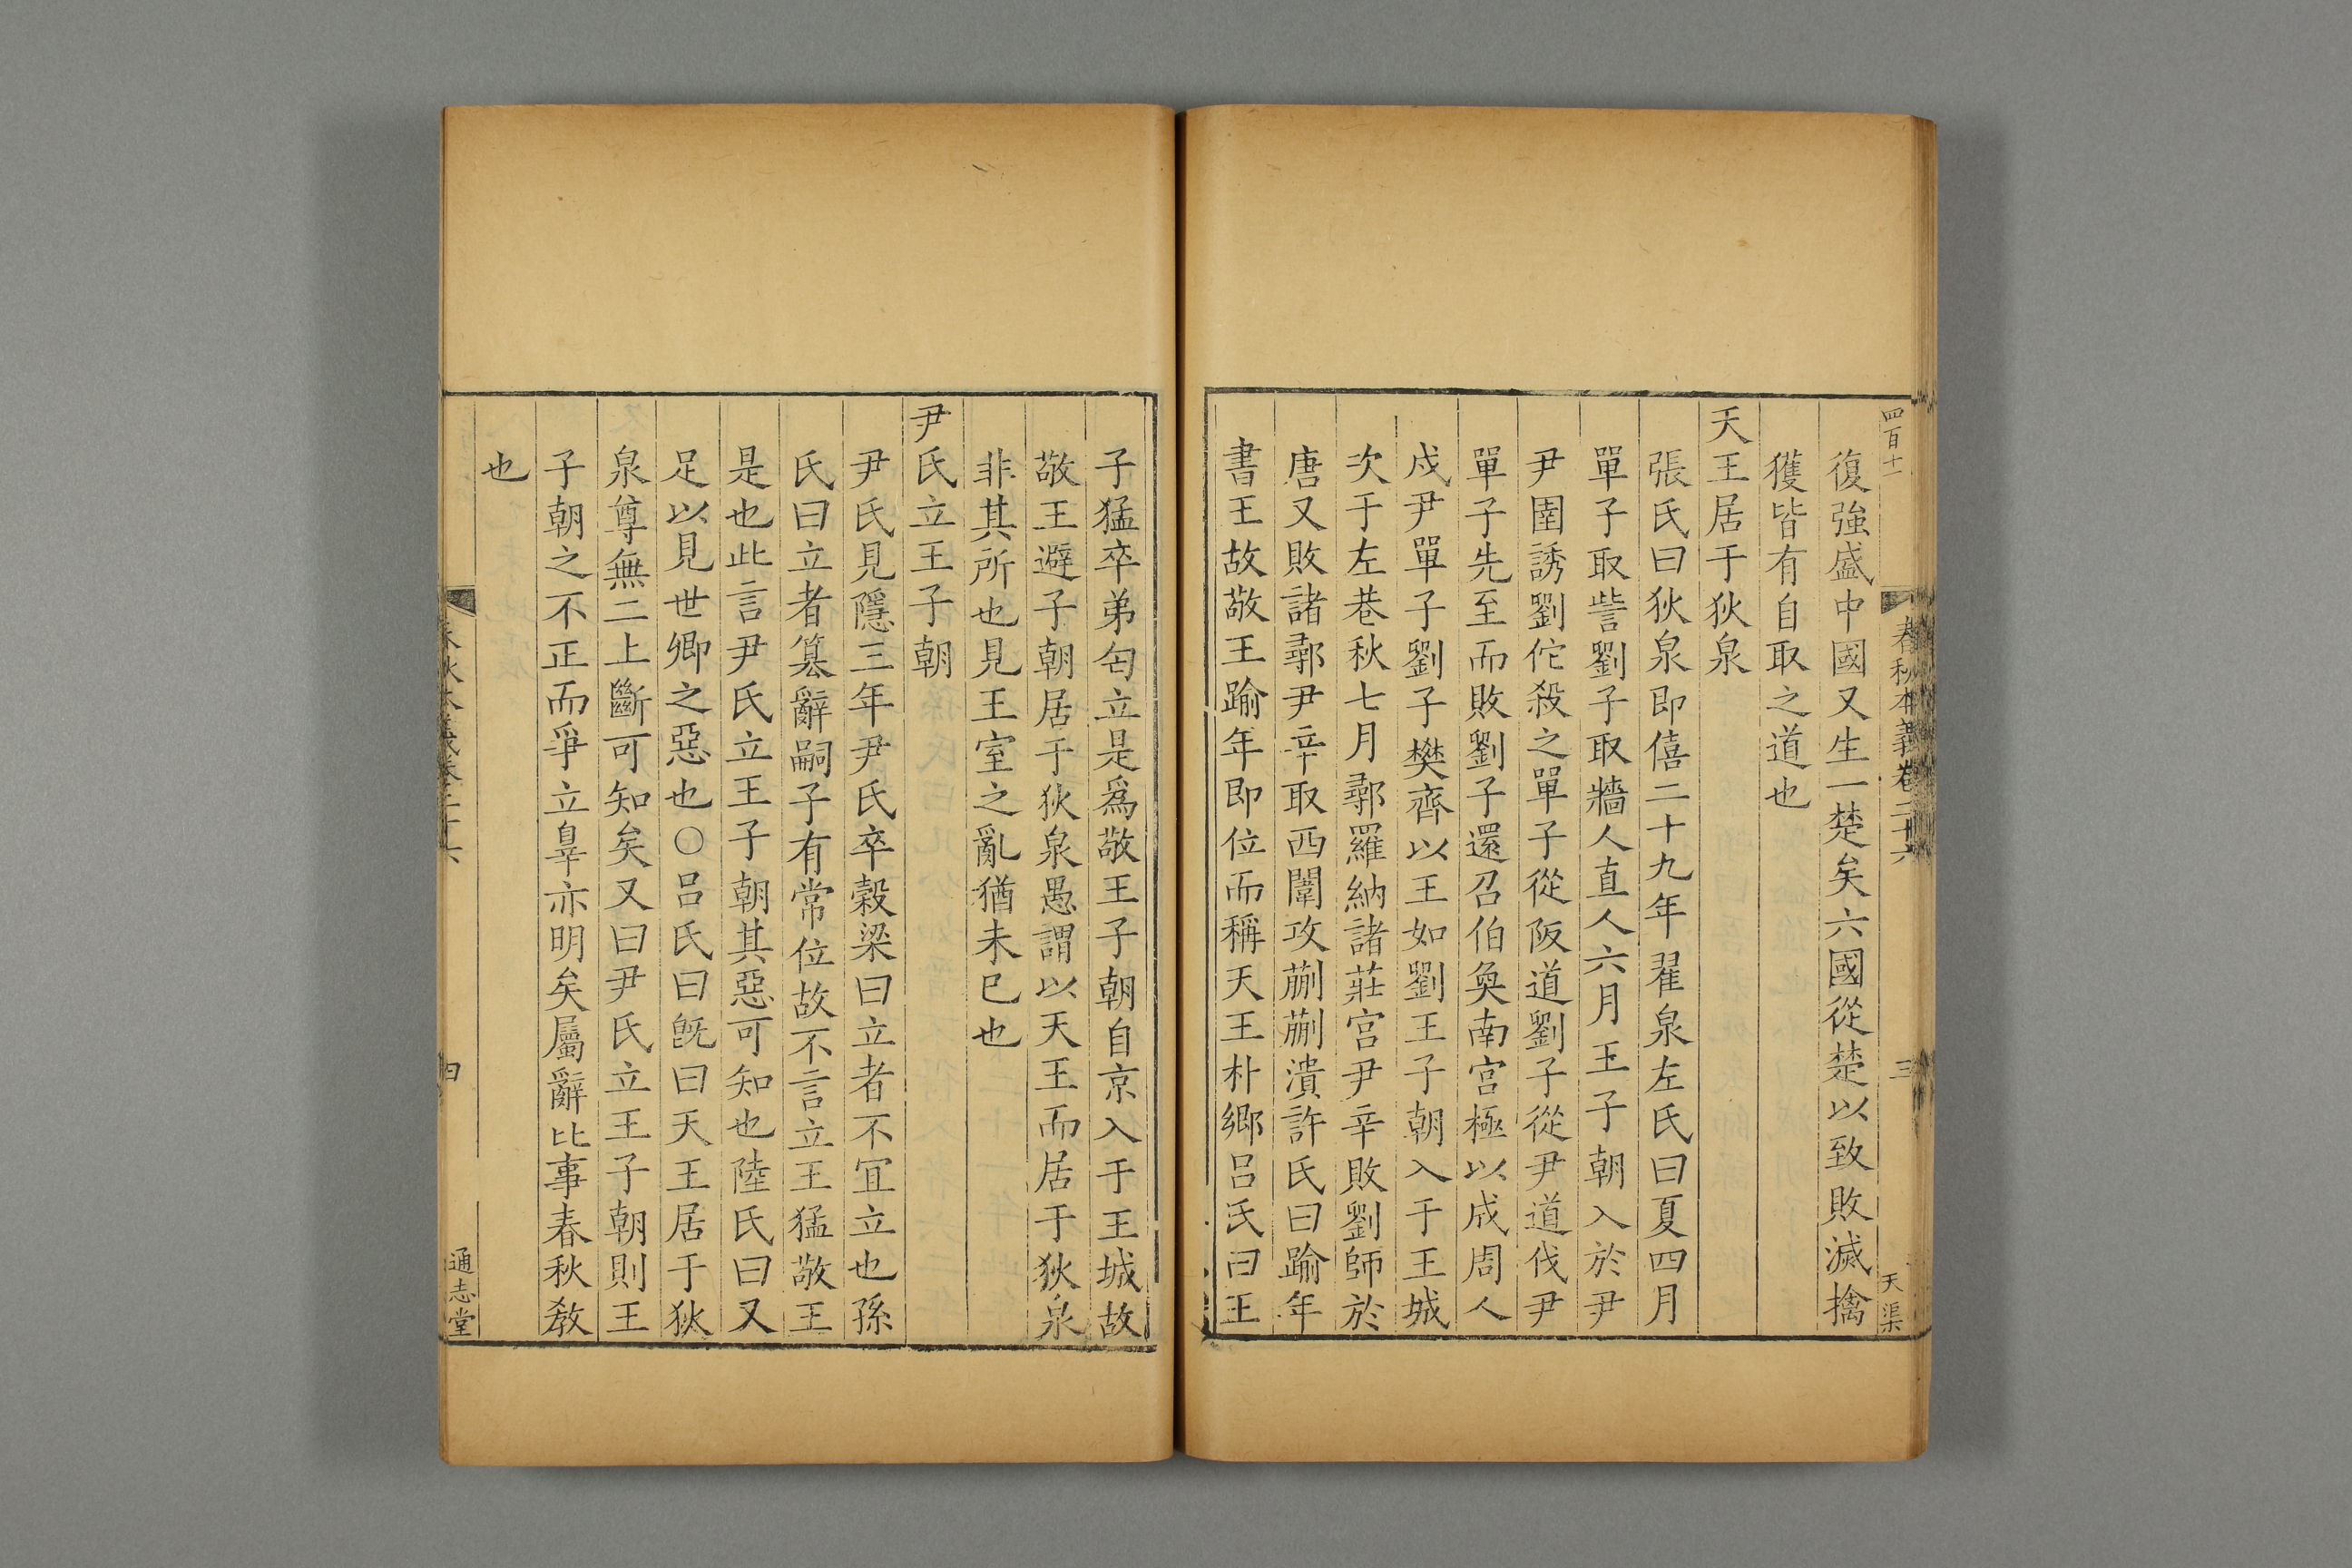 四百十一
春秋本義卷二十六
三
天渠
復強盛中國又生一楚矣六國從楚以致敗滅擒
獲皆有自取之道也
天王居于狄泉
張氏曰狄泉即僖二十九年翟泉左氏曰夏四月
單子取訾劉子取牆人直人六月王子朝入於尹
尹圉誘劉佗殺之單子從阪道劉子從尹道伐尹
單子先至而敗劉子還召伯奐南宮極以成周人
戍尹單子劉子樊齊以王如劉王子朝入于王城
次于左巷秋七月鄩羅納諸莊宮尹辛敗劉師於
唐又敗諸鄩尹辛取西闈攻蒯蒯潰許氏曰踰年
書王故敬王踰年即位而稱天王朴鄉呂氏曰王
子猛卒弟匄立是爲敬王子朝自京入于王城故
敬王避子朝居于狄泉愚謂以天王而居于狄泉
非其所也見王室之亂猶未已也
尹氏立王子朝
尹氏見隱三年尹氏卒穀梁曰立者不宜立也孫
氏曰立者篡辭嗣子有常位故不言立王猛敬王
是也此言尹氏立王子朝其惡可知也陸氏曰又
足以見世卿之惡也○呂氏曰旣曰天王居于狄
泉尊無二上斷可知矣又曰尹氏立王子朝則王
子朝之不正而爭立辠亦明矣屬辭比事春秋教
也
春秋本義卷二十六
四
通志堂